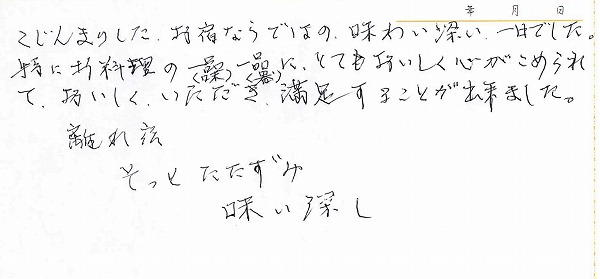 年 月 日
こじんまりした、お宿ならではの、味わい深い、一日でした。
特にお料理の一品一品に、とてもおいしく心がこめられ
て、おいしく、いただき、満足することが出来ました。
離れ宿
そっとたたずみ
味い深し